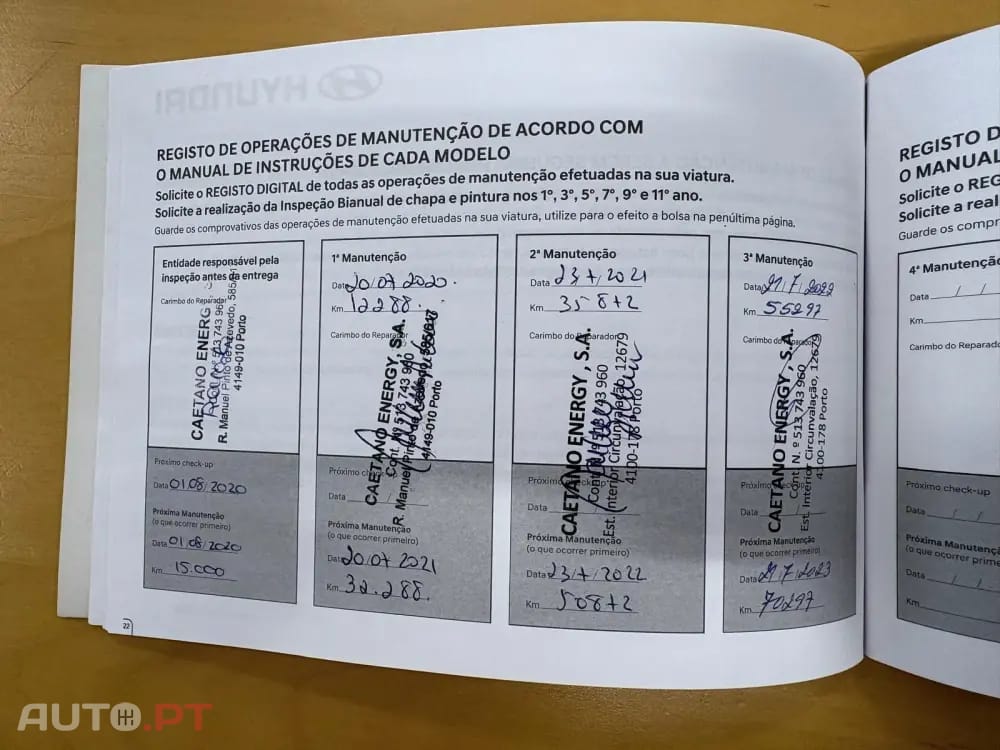 HYUNDAI
REGISTO DE OPERAÇÕES DE MANUTENÇÃO DE ACORDO COM
O MANUAL DE INSTRUÇÕES DE CADA MODELO
Solicite o REGISTO DIGITAL de todas as operações de manutenção efetuadas na sua viatura.
Solicite a realização da Inspeção Bianual de chapa e pintura nos 1º, 3º, 5º, 7º, 9º e 11º ano.
Guarde os comprovativos das operações de manutenção efetuadas na sua viatura, utilize para o efeito a bolsa na penúltima página.
Entidade responsável pela
inspeção antes da entrega
Carimbo do Reparador
CAETANO ENERGY
513 743 960
R. Manuel Pinto de Azevedo, 585/
4149-010 Porto
Próximo check-up
Data 01/08/2020
Próxima Manutenção
(o que ocorrer primeiro)
Data 01/08/2020
Km 15.000
1ª Manutenção
Data 20/07/2020
Km 12288.
Carimbo do Reparador
CAETANO ENERGY, S.A.
Cont. Nº 513 743 960
R. Manuel Pinto de Azevedo, 585/617
4149-010 Porto
Próximo check-up
Data / /
Próxima Manutenção
(o que ocorrer primeiro)
Data 20/07/2021
Km 32.288.
2ª Manutenção
Data 23/7/2021
Km 35872
Carimbo do Reparador
CAETANO ENERGY, S.A.
Cont. N.º 513 743 960
Est. Interior Circunvalação, 12679
4100-178 Porto
Próximo check-up
Data / /
Próxima Manutenção
(o que ocorrer primeiro)
Data 23/7/2022
Km 50872
3ª Manutenção
Data 21/7/2022
Km 55297
Carimbo do Reparador
CAETANO ENERGY, S.A.
Cont. N.º 513 743 960
Est. Interior Circunvalação, 12679
4100-178 Porto
Próximo check-up
Data / /
Próxima Manutenção
(o que ocorrer primeiro)
Data 21/7/2023
Km 70297
22
REGISTO D
O MANUAL
Solicite o REG
Solicite a real
Guarde os compr
4ª Manutenção
Data / /
Km
Carimbo do Reparador
Próximo check-up
Data / /
Próxima Manutenç
(o que ocorrer prime
Data / /
Km
AUTO.PT